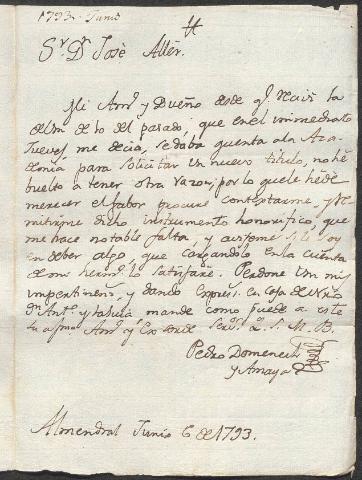 1793. Junio
Sr. Dn. Josè Allèr.
Mi Amo. y Dueño desde qe. recivi la
de Vm de 10 del pasado, que en el inmediato
Jueves, me decia, se daba quenta a la Aca-
demia para solicitar un nuevo titulo, no hè
buelto a tener otra razon, por lo que le hè de
merecer el fabor procure contestarme, y re-
mitirme dicho instrumento honorifico, que
me hace notable falta, y aviseme si le soy
en deber algo, que cargandolo en la cuenta
de mi hermo. lo satisfarè. Perdone Vm mis
impertinens. y dando expresis. en casa de
Dn. Anto. y mande como puede a este
su afmo. Amo. y Q. S. M. B.
Pedro Domenech
y Amaya
Almendral Junio 6 de 1793.